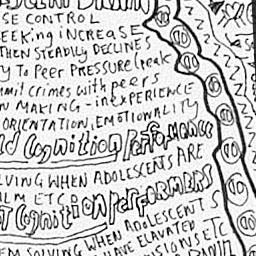 SE CONTROL
SEEKING INCREASE
THEN STEADILY DECLINES
y To Peer PRESSURE (reak
mmit crimes with peers
N MAKING - inEXPERIENCE
ORIENTATION, EMOTIONALITY
d Cognition Performance
LVING WHEN ADOLESCENTS ARE
ALM ETC
T Cognition PERFORMERS
EM SOLVING WHEN ADOLESCENTS
HAVE ELAVATED
ISIONS ETC